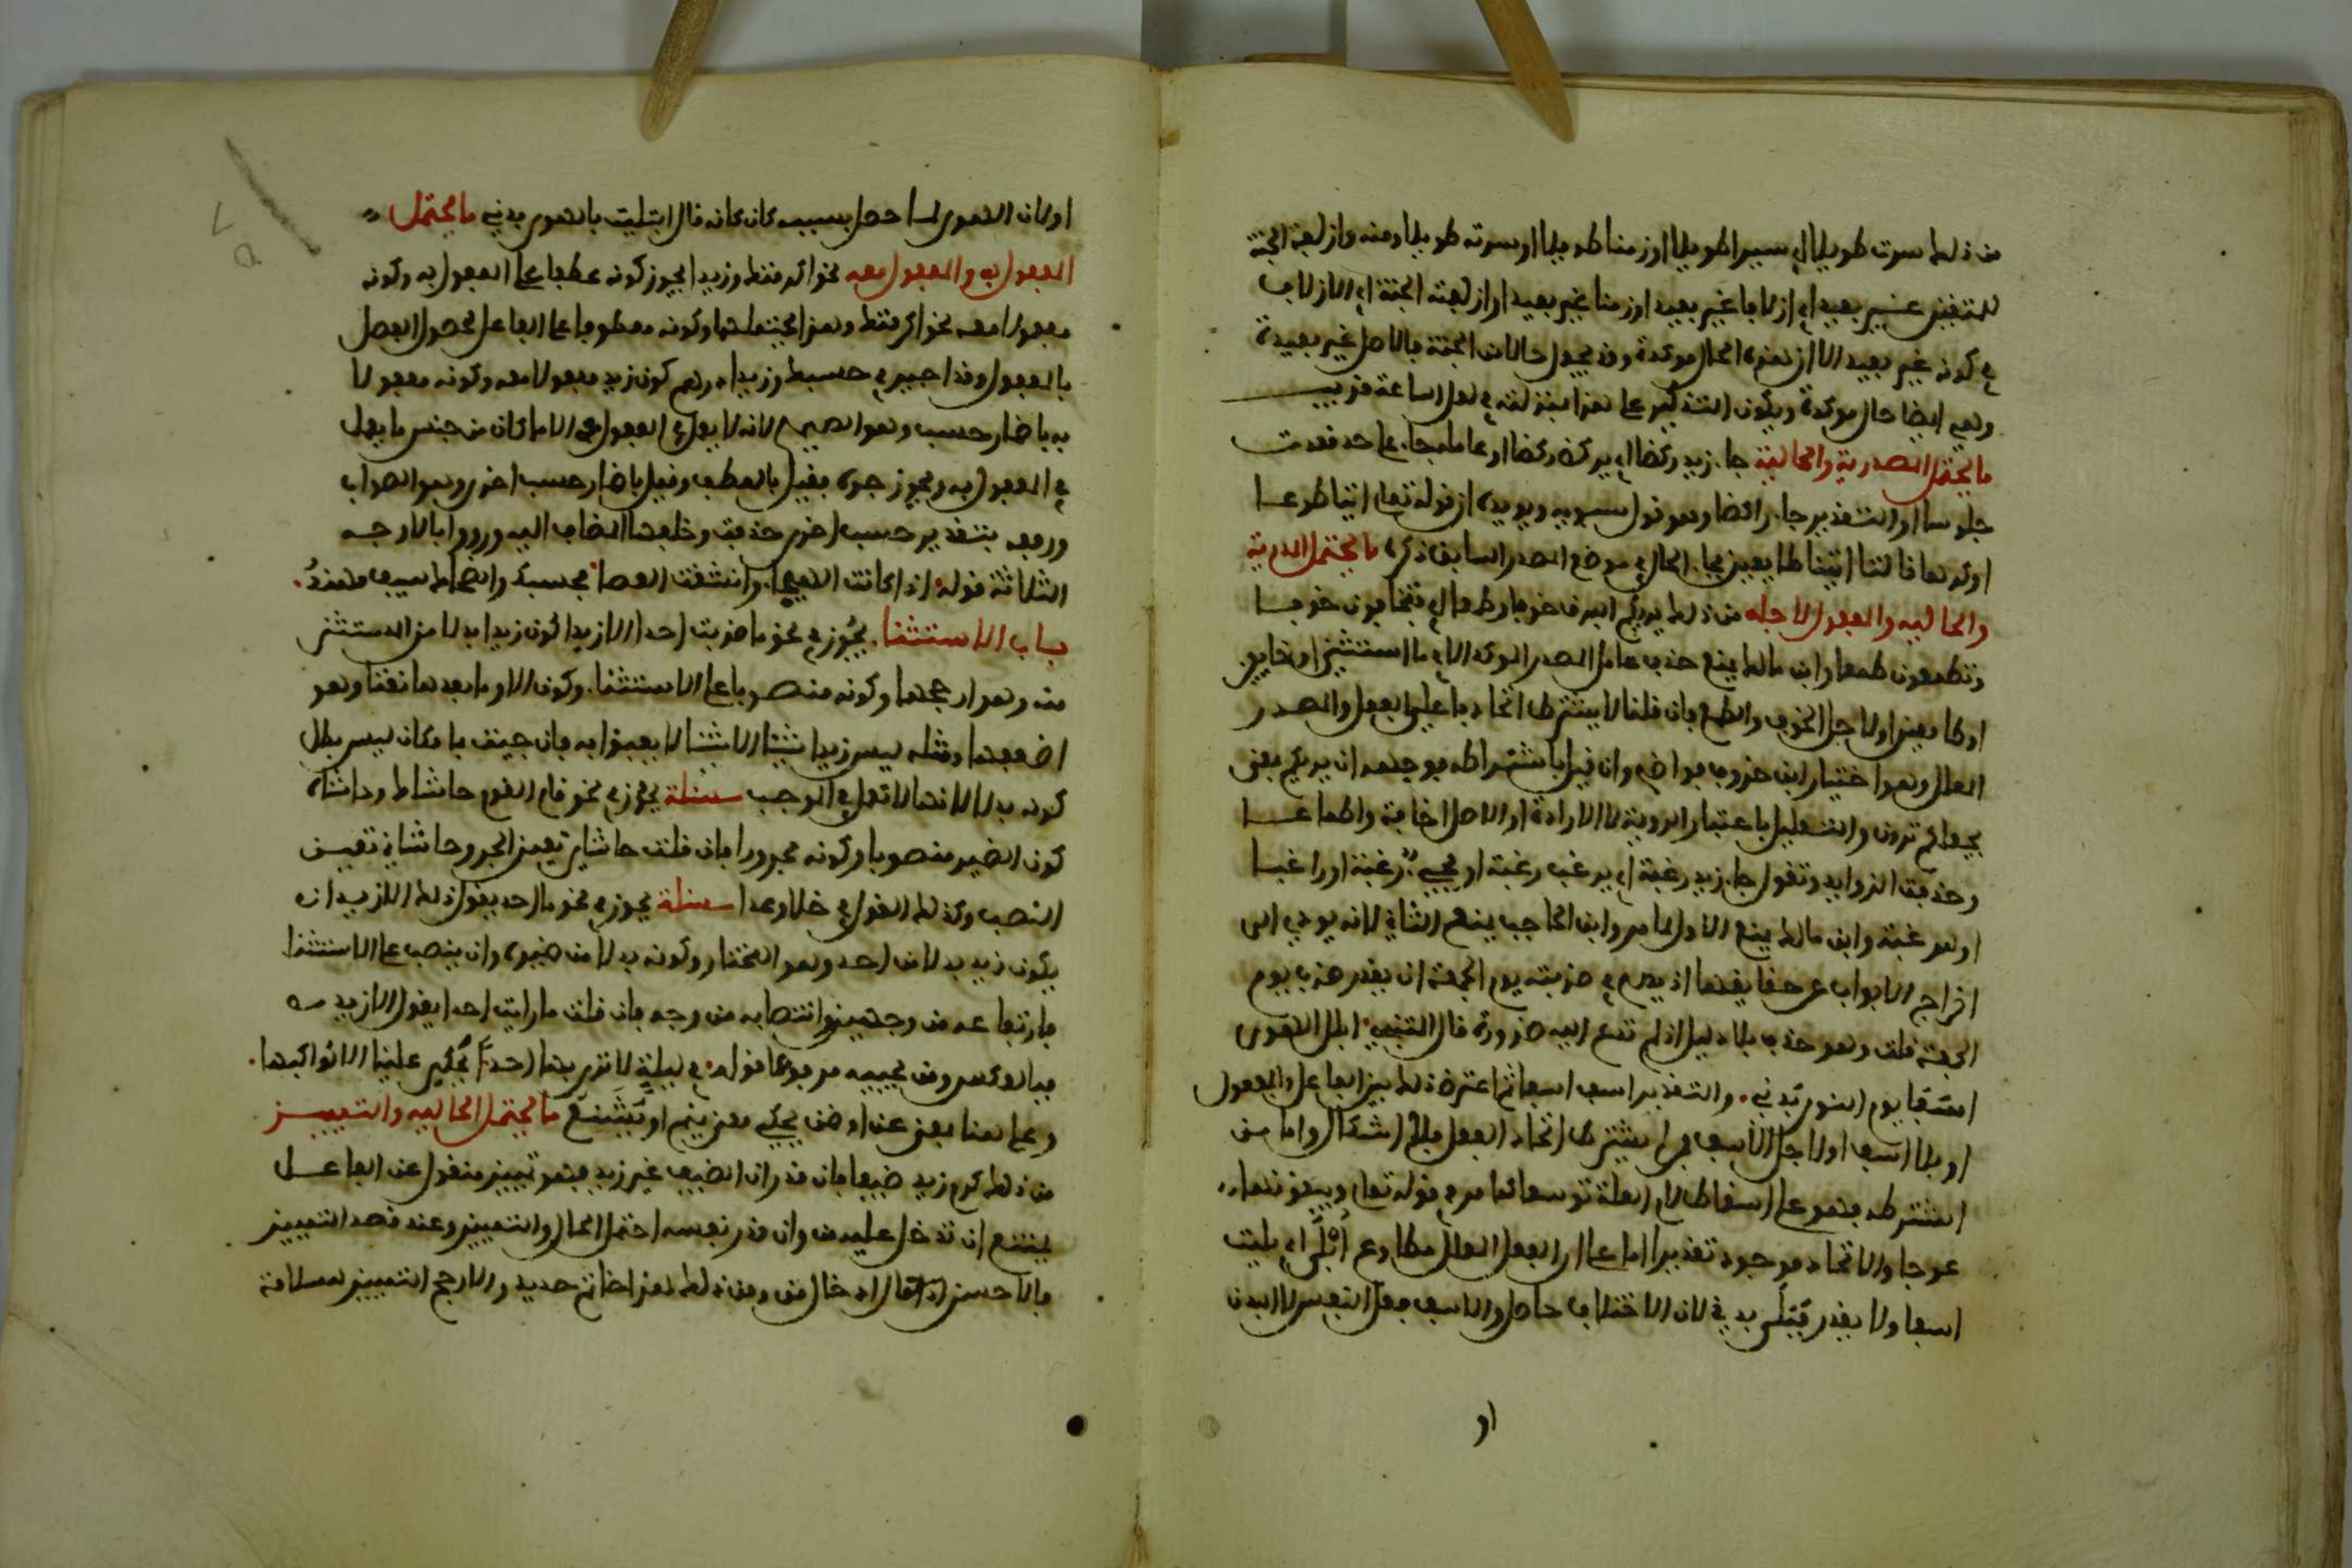 من ذلك سرت طويلا اي سيرا طويلا او زمنا طويلا او سرته طويلا ومنه وازلفت الجنة
للمتقين غير بعيد اي ازلافا غير بعيد او زمنا غير بعيد او ازلفته الجنة اي الازلاف
في كونه غير بعيد الا ان هذه الحال موكدة وقد يجعل حالا من الجنة فالاصل غير بعيدة
وهي ايضا حال موكدة ويكون التذكير على هذا بمنزلته في لعل الساعة قريب
ما يحتمل المصدرية والحالية جاء زيد ركضا اي يركض ركضا او عامله جاء على حد قعدت
جلوسا او التقدير جاء راكضا وهو قول سيبويه ويويده ان قوله تعلى ايتيا طوعا
او كرها قالتا اتينا طايعين فجاء الحال في موضع المصدر السابق ذكره ما يحتمل المصدرية
والحاليه والمفعول لاجله من ذلك يريكم البرق خوفا وطمعا اي فتخافون خوفا
وتطمعون طمعا وابن مالك يمنع حذف عامل المصدر الموكد الا في ما استثني او خايفين
او طامعين او لاجل الخوف والطمع فان قلنا لا يشترط اتحاد فاعلي الفعل والمصدر
المعلل وهو اختيار ابن خروف فواضح وان قيل باشتراطه فوجهه ان يريكم بمعنى
يجعلكم ترون والتعليل باعتبار الروية لا الاراءة او الاصل اخافة واطماعا
وحذفت الزوايد وتقول جاء زيد رغبة اي يرغب رغبة او مجيء رغبة او راغبا
او للرغبة وابن مالك يمنع الاول لما مر وابن الحاجب يمنع الثاني لانه يودي الى
اخراج الابواب عن حقايقها اذ يصح في ضربته يوم الجمعة ان يقدر ضرب يوم
الجمعة قلت وهو حذف بلا دليل اذ لم تدع اليه ضرورة قال المتنبي ابلى الهوى
اسفا يوم النوى بدني والتقدير اسف اسفا ثم اعترض ذلك بين الفاعل والمفعول
او بلا اسف او لاجل الاسف فمن لم يشترط اتحاد الفعل فلا اشكال واما من
اشترطه فهو على اسقاط لام العلة توسعا كما مر في قوله تعلى ويبغونها
عوجا والاتحاد موجود تقديرا اما على ان الفعل المعلل مطاوع ابلى اي بليت
اسفا ولا يقدر فبلي بدني لان الاختلاف حاصل والاسف فعل النفس لا البدن
او
او لان الهوى لما حصل بسببه كان كانه قال ابليت بالهوى بدني ما يحتمل
المفعول به والمفعول معه نحو اكرمتك وزيدا يجوز كونه عطفا على المفعول به وكونه
مفعولا معه نحو اكرمتك وهذا يحتملهما وكونه معطوفا على الفاعل لحصول الفصل
بالمفعول وقد اجيز في حسبك وزيدا درهم كون زيد مفعولا معه وكونه مفعولا
به باضمار حسب وهو الصحيح لانه لا يعمل في المفعول معه الا ما كان من جنس ما يعمل
في المفعول به ويجوز جره فقيل بالعطف وقيل باضمار حسب اخرى وهو الصواب
ورفعه بتقدير حسب اخرى حذفت وخلفها المضاف اليه ورووا بالاوجه
الثلاثة قوله اذا كانت الهيجاء وانشقت العصا فحسبك والضحاك سيف مهند
باب الاستثنا يجوز في نحو ما ضربت احدا الا زيدا كون زيدا بدلا من المستثنى
منه وهو ارجحها وكونه منصوبا على الاستثنا وكون الا وما بعدها نعتا وهو
اضعفها ومثله ليس زيدا شيئا الا شيئا لا يعبؤا به فان جيت بما مكان ليس بطل
كونه بدلا لانها لا تعمل في الموجب مسئلة يجوز في نحو قام القوم حاشاك وحاشاه
كون الضمير منصوبا وكونه مجرورا فان قلت حاشاي تعين الجر وحاشاني تعين
النصب وكذلك القول في خلا وعدا مسئلة يجوز في نحو ما احد يقول ذلك الا زيد ان
يكون زيد بدلا من احد وهو المختار وكونه بدلا من ضميره وان ينصب على الاستثنا
فارتفاعه من وجهين وانتصابه من وجه فان قلت ما رايت احدا يقول الا زيد
فبالعكس ومن مجييه مرفوعا قوله في ليلة لا نرى بها احدا يحكي علينا الا كواكبها
وعلى هنا بمعنى عن او ضمن يحكي معنى ينم او يشنع ما يحتمل الحاليه والتمييز
من ذلك كرم زيد ضيفا فان قدر ان الضيف غير زيد فهو تمييز منقول عن الفاعل
يمتنع ان تدخل عليه من وان قدر نفسه احتمل الحال والتمييز وعند قصد التمييز
فالاحسن ادخال من ومن ذلك هذا خاتم حديدا والارجح التمييز لسلامة